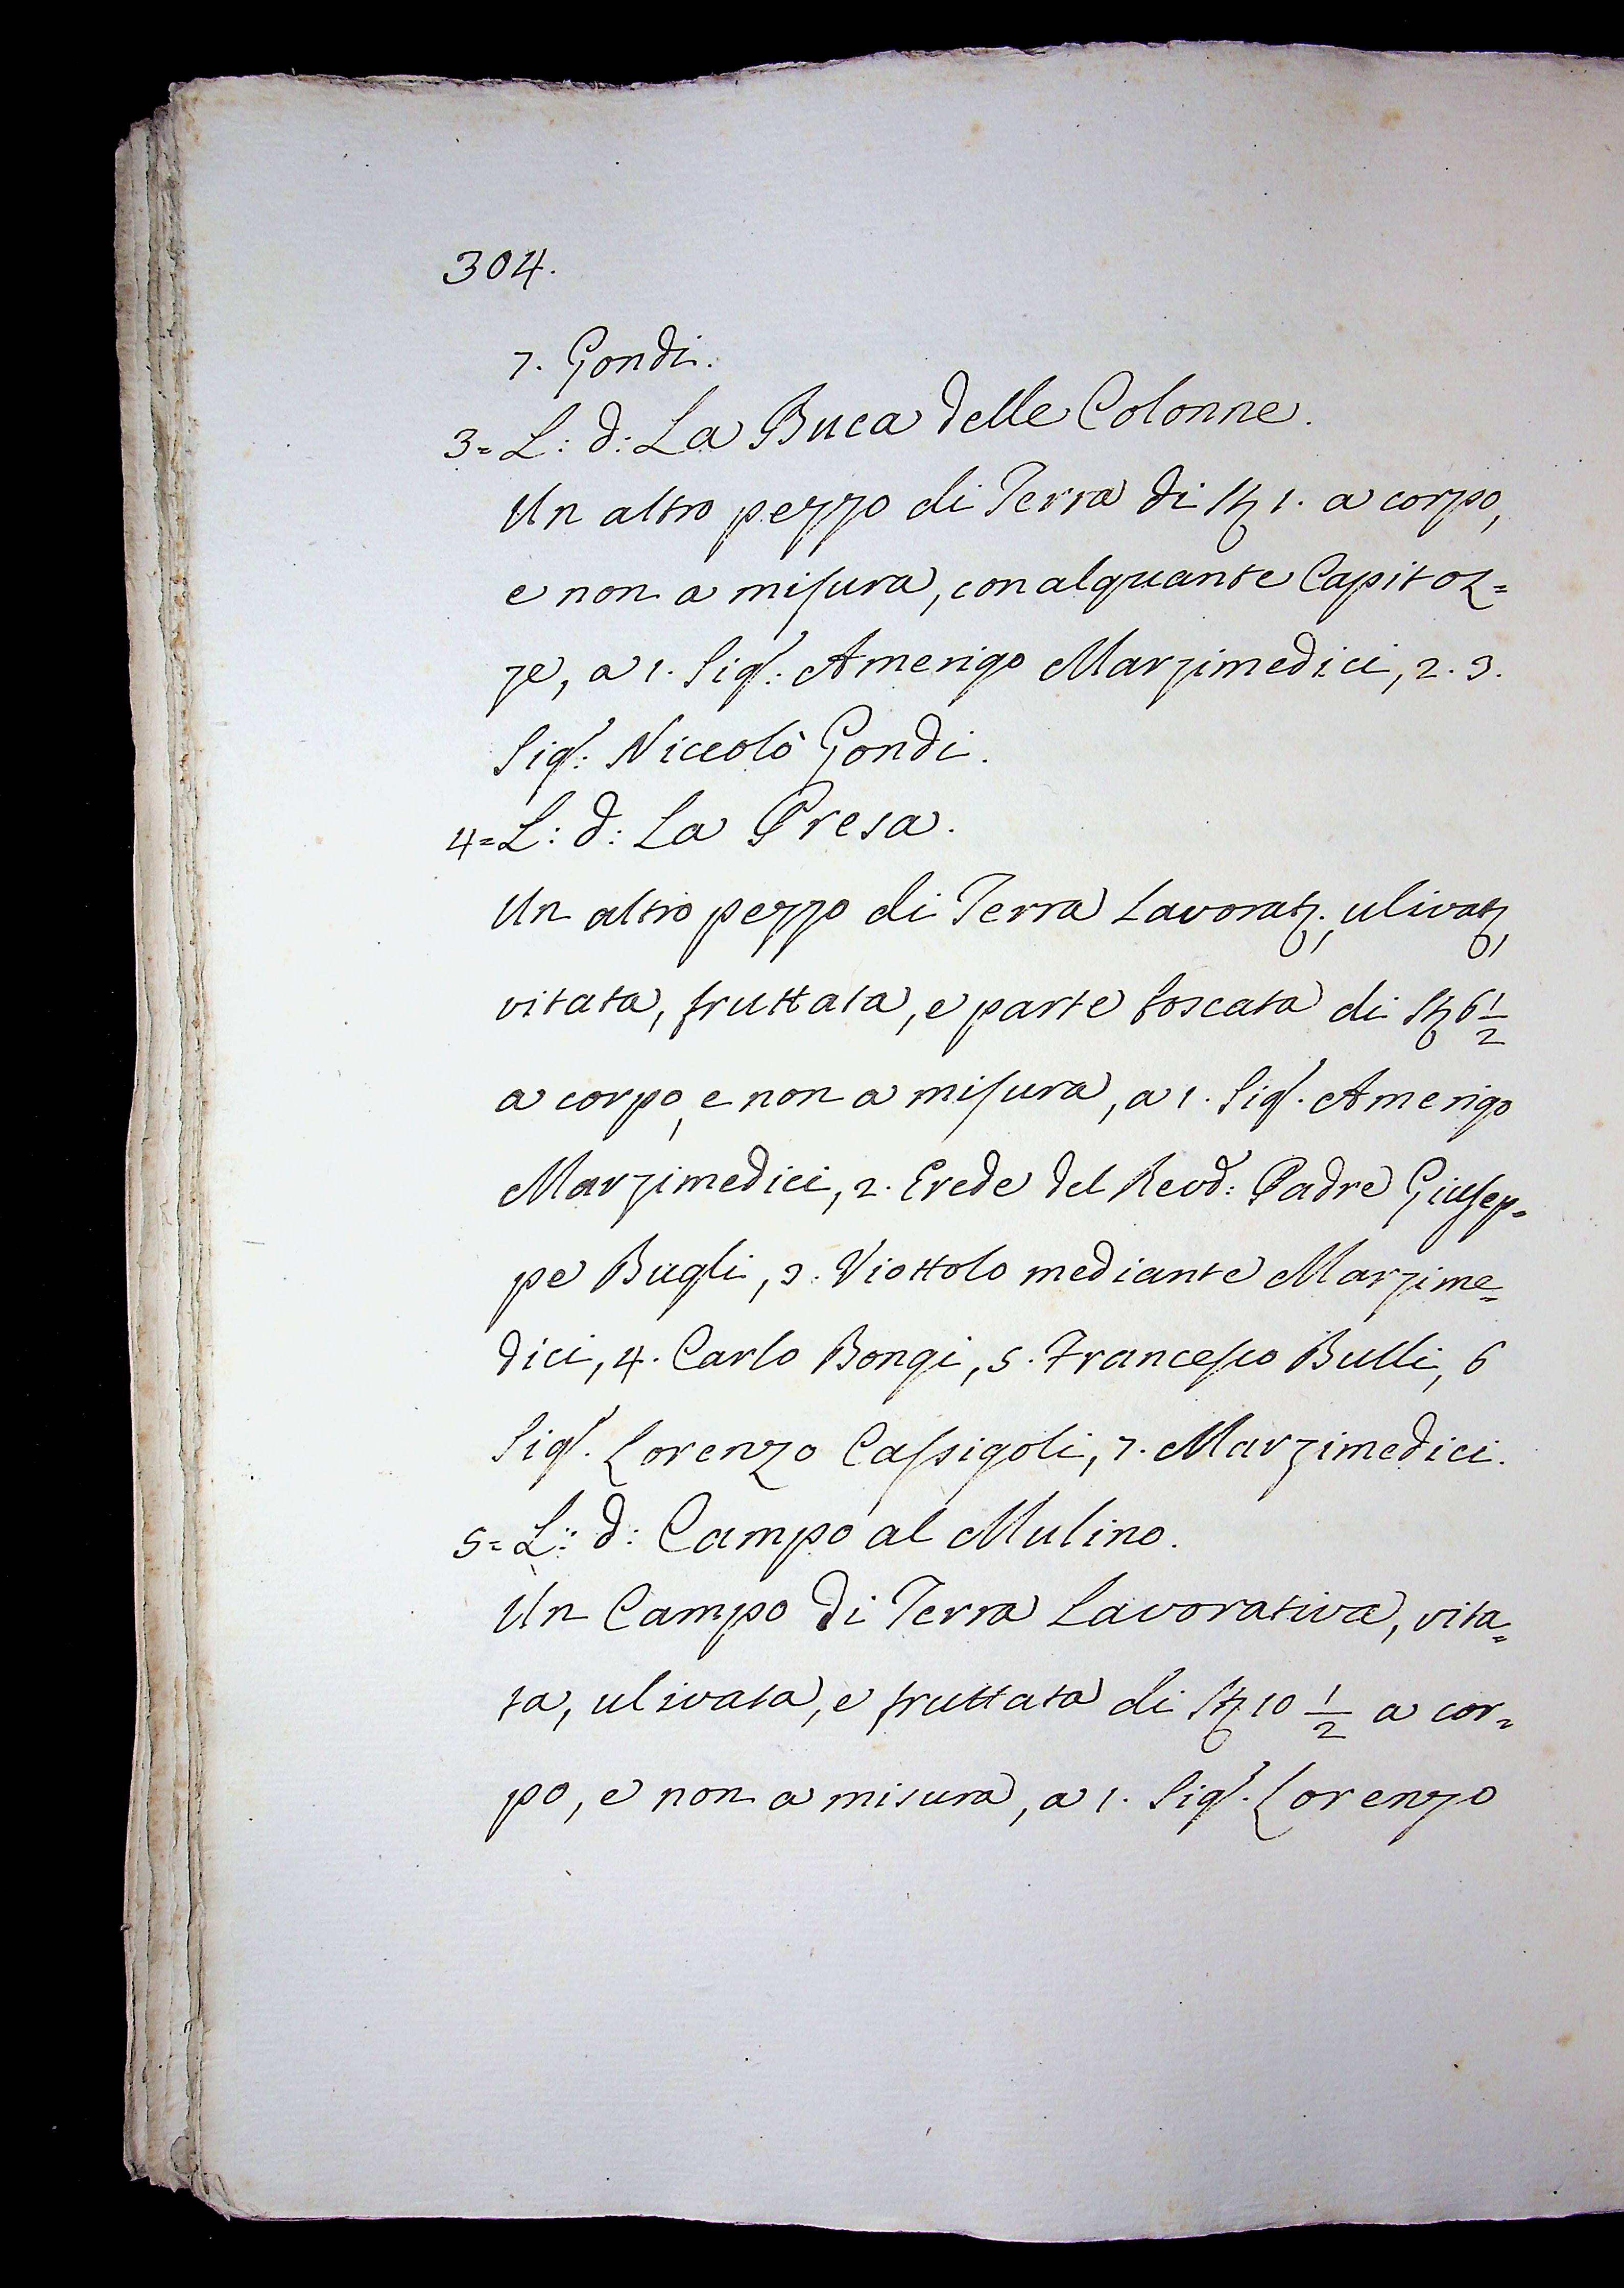 304.
7. Gondi.
3= L: d: La Buca delle Colonne.
Un altro pezzo di Terra di St 1. a corpo,
e non a misura, con alquante Capitoz=
ze, a 1. Sig.: Amerigo Marzimedici, 2. 3.
Sig.: Niccolò Gondi.
4= L: d: La Presa.
Un altro pezzo di Terra Lavorat:, ulivat,
vitata, fruttata, e parte boscata di St 6 1/2
a corpo, e non a misura, a 1. Sig. Amerigo
Marzimedici, 2. Erede del Revd: Padre Giusep=
pe Bugli, 3. Viottolo mediante Marzime=
dici, 4. Carlo Bongi, 5. Francesco Bulli, 6
Sig. Lorenzo Cassigoli, 7. Marzimedici.
5= L: d: Campo al Mulino.
Un Campo di Terra Lavorativa, vita=
ta, ulivata, e fruttata di St 10 1/2 a cor=
po, e non a misura, a 1. Sig. Lorenzo